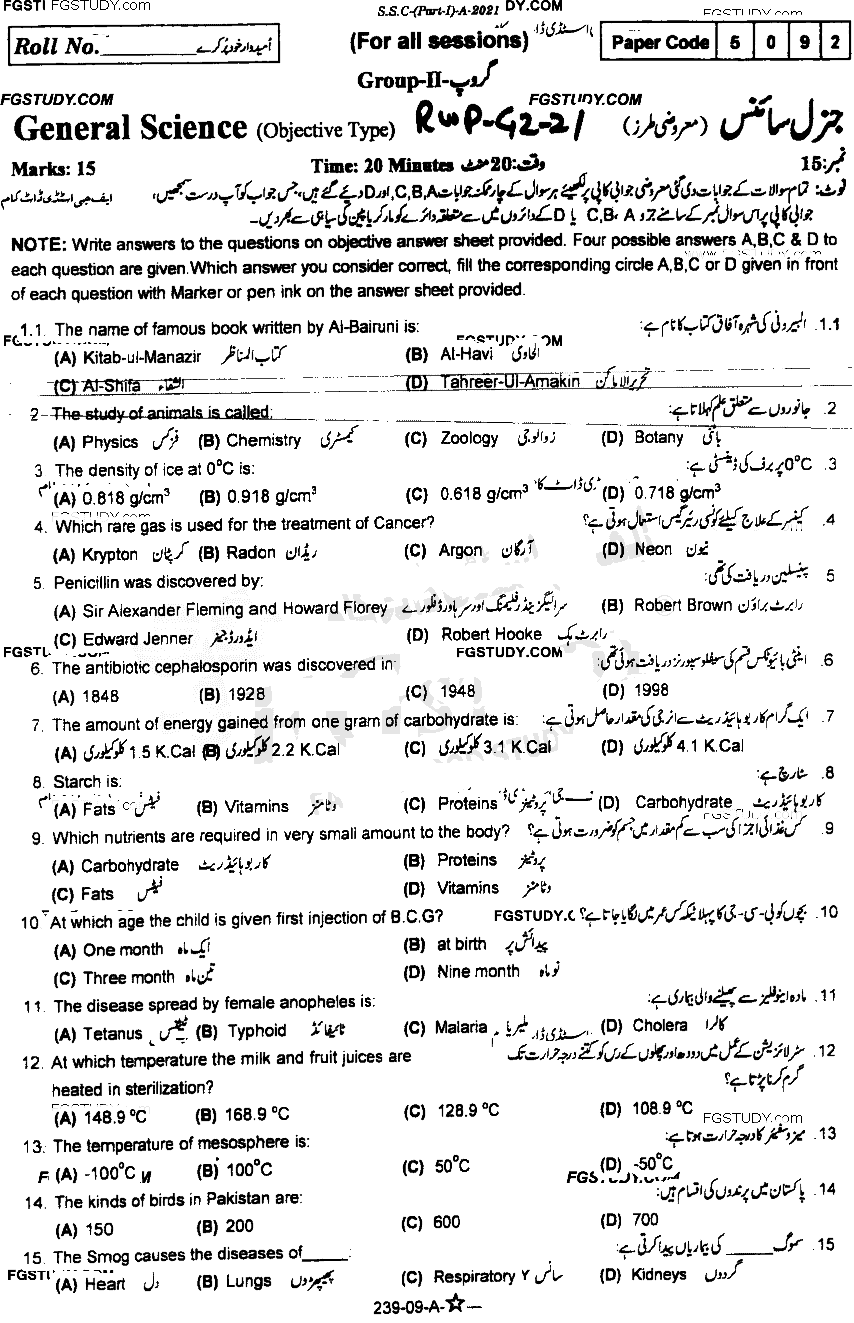 FGSTI FGSTUDY.com S.S.C-(Part-I)-A-2021 DY.COM FGSTUDY.com
Roll No. امیدوار خود پُر کرے (For all sessions) Paper Code 5 0 9 2
Group-II-گروپ
FGSTUDY.COM FGSTUDY.COM
General Science (Objective Type) RWP-G2-21 (معروضی طرز) جنرل سائنس
Marks: 15 Time: 20 Minutes وقت:20 منٹ نمبر:15
نوٹ: تمام سوالات کے جوابات دی گئی معروضی جوابی کاپی پر لکھیئے ہر سوال کے چار ممکنہ جوابات C,B,A اور D دیئے گئے ہیں، جس جواب کو آپ درست سمجھیں، ایف جی اسٹڈی ڈاٹ کام
جوابی کاپی پر اس سوال نمبر کے سامنے دیئے گئے C,B,A یا D کے دائروں میں سے متعلقہ دائرے کو مارکر یا پین کی سیاہی سے بھر دیں۔
NOTE: Write answers to the questions on objective answer sheet provided. Four possible answers A,B,C & D to
each question are given.Which answer you consider correct, fill the corresponding circle A,B,C or D given in front
of each question with Marker or pen ink on the answer sheet provided.
1.1. The name of famous book written by Al-Bairuni is: البیرونی کی شہرہ آفاق کتاب کا نام ہے: 1.1
(A) Kitab-ul-Manazir کتاب المناظر (B) Al-Havi الحاوی
(C) Al-Shifa الشفاء (D) Tahreer-Ul-Amakin تحریر الاماکن
2 The study of animals is called: جانوروں سے متعلق علم کہلاتا ہے: 2.
(A) Physics فزکس (B) Chemistry کیمسٹری (C) Zoology زوالوجی (D) Botany باٹنی
3 The density of ice at 0°C is: 0°C پر برف کی ڈینسٹی ہے: 3.
(A) 0.818 g/cm³ (B) 0.918 g/cm³ (C) 0.618 g/cm³ (D) 0.718 g/cm³
4. Which rare gas is used for the treatment of Cancer? کینسر کے علاج کیلئے کونسی ریئر گیس استعمال ہوتی ہے؟ 4.
(A) Krypton کرپٹان (B) Radon ریڈان (C) Argon آرگان (D) Neon نیون
5. Penicillin was discovered by: پینسلین دریافت کی تھی: 5
(A) Sir Alexander Fleming and Howard Florey سر الیگزینڈر فلیمنگ اور سر ہاورڈ فلورے (B) Robert Brown رابرٹ براؤن
(C) Edward Jenner ایڈورڈ جینر (D) Robert Hooke رابرٹ ہک
FGSTU FGSTUDY.COM
6. The antibiotic cephalosporin was discovered in: اینٹی بائیوٹکس قسم کی سیفلوسپورنز دریافت ہوئی تھی: 6.
(A) 1848 (B) 1928 (C) 1948 (D) 1998
7. The amount of energy gained from one gram of carbohydrate is: ایک گرام کاربوہائیڈریٹ سے انرجی کی مقدار حاصل ہوتی ہے: 7.
(A) کلوکیلوری 1.5 K.Cal (B) کلوکیلوری 2.2 K.Cal (C) کلوکیلوری 3.1 K.Cal (D) کلوکیلوری 4.1 K.Cal
8. Starch is: سٹارچ ہے: 8.
(A) Fats فیٹس (B) Vitamins وٹامنز (C) Proteins پروٹینز (D) Carbohydrate کاربوہائیڈریٹ
9. Which nutrients are required in very small amount to the body? کس غذائی اجزا کی سب سے کم مقدار میں جسم کو ضرورت ہوتی ہے؟ 9.
(A) Carbohydrate کاربوہائیڈریٹ (B) Proteins پروٹینز
(C) Fats فیٹس (D) Vitamins وٹامنز
10 At which age the child is given first injection of B.C.G? FGSTUDY.C بچوں کو بی-سی-جی کا پہلا ٹیکہ کس عمر میں لگایا جاتا ہے؟ 10.
(A) One month ایک ماہ (B) at birth پیدائش پر
(C) Three month تین ماہ (D) Nine month نو ماہ
11. The disease spread by female anopheles is: مادہ اینوفلیز سے پھیلنے والی بیماری ہے: 11.
(A) Tetanus ٹیٹنس (B) Typhoid ٹائیفائڈ (C) Malaria ملیریا (D) Cholera کالرا
12. At which temperature the milk and fruit juices are سٹرلائزیشن کے عمل میں دودھ اور پھلوں کے رس کو کتنے درجہ حرارت تک 12.
heated in sterilization? گرم کرنا پڑتا ہے؟
(A) 148.9 °C (B) 168.9 °C (C) 128.9 °C (D) 108.9 °C FGSTUDY.com
13. The temperature of mesosphere is: میزوسفیئر کا درجہ حرارت ہوتا ہے: 13.
(A) -100°C (B) 100°C (C) 50°C (D) -50°C
14. The kinds of birds in Pakistan are: پاکستان میں پرندوں کی اقسام ہیں: 14.
(A) 150 (B) 200 (C) 600 (D) 700
15. The Smog causes the diseases of_____: سموگ _____ کی بیماریاں پیدا کرتی ہے: 15.
FGSTU (A) Heart دل (B) Lungs پھیپھڑوں (C) Respiratory سانس (D) Kidneys گردوں
239-09-A-☆—